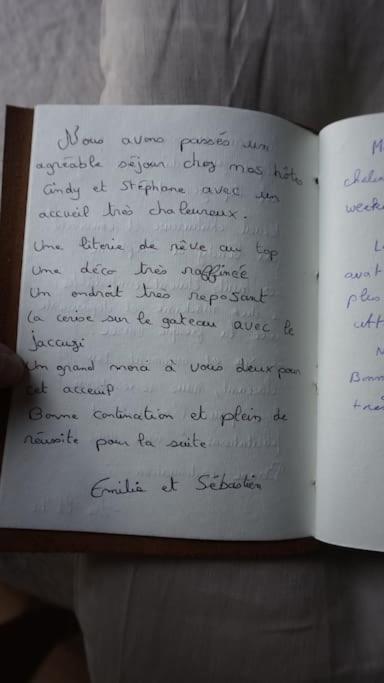 Nous avons passés un
agréable séjour chez mos hôtes
Cindy et Stéphane avec un
accueil très chaleureux.
Une literie de rêve au top
Une déco très raffinée
Un endroit très reposant
La cerise sur le gateau avec le
jaccuzi
Un grand merci à vous deux pour
cet acceuil
Bonne continuation et plein de
réussite pour la suite
Emilie et Sébastien
M
chaleu
weeke
L
avat
plus
att
N
Bonn
tre